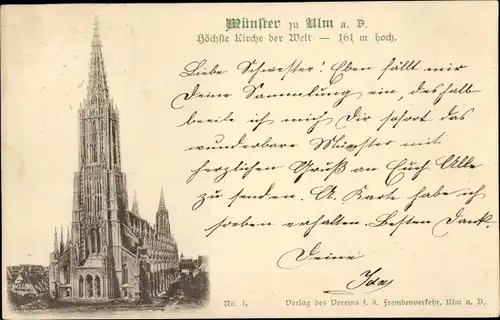 Münster zu Ulm a. D.
Höchste Kirche der Welt — 161 m hoch.
Liebe Schwester! Eben fällt mir
Deine Sammlung ein, deshalb
beeile ich mich Dir sofort das
wunderbare Münster mit
herzlichen Gruß an Euch Alle
zu senden. A. Karte habe ich
soeben erhalten. Besten Dank.
Deine
Ida
No. 1.
Verlag des Vereins f. d. Fremdenverkehr, Ulm a. D.